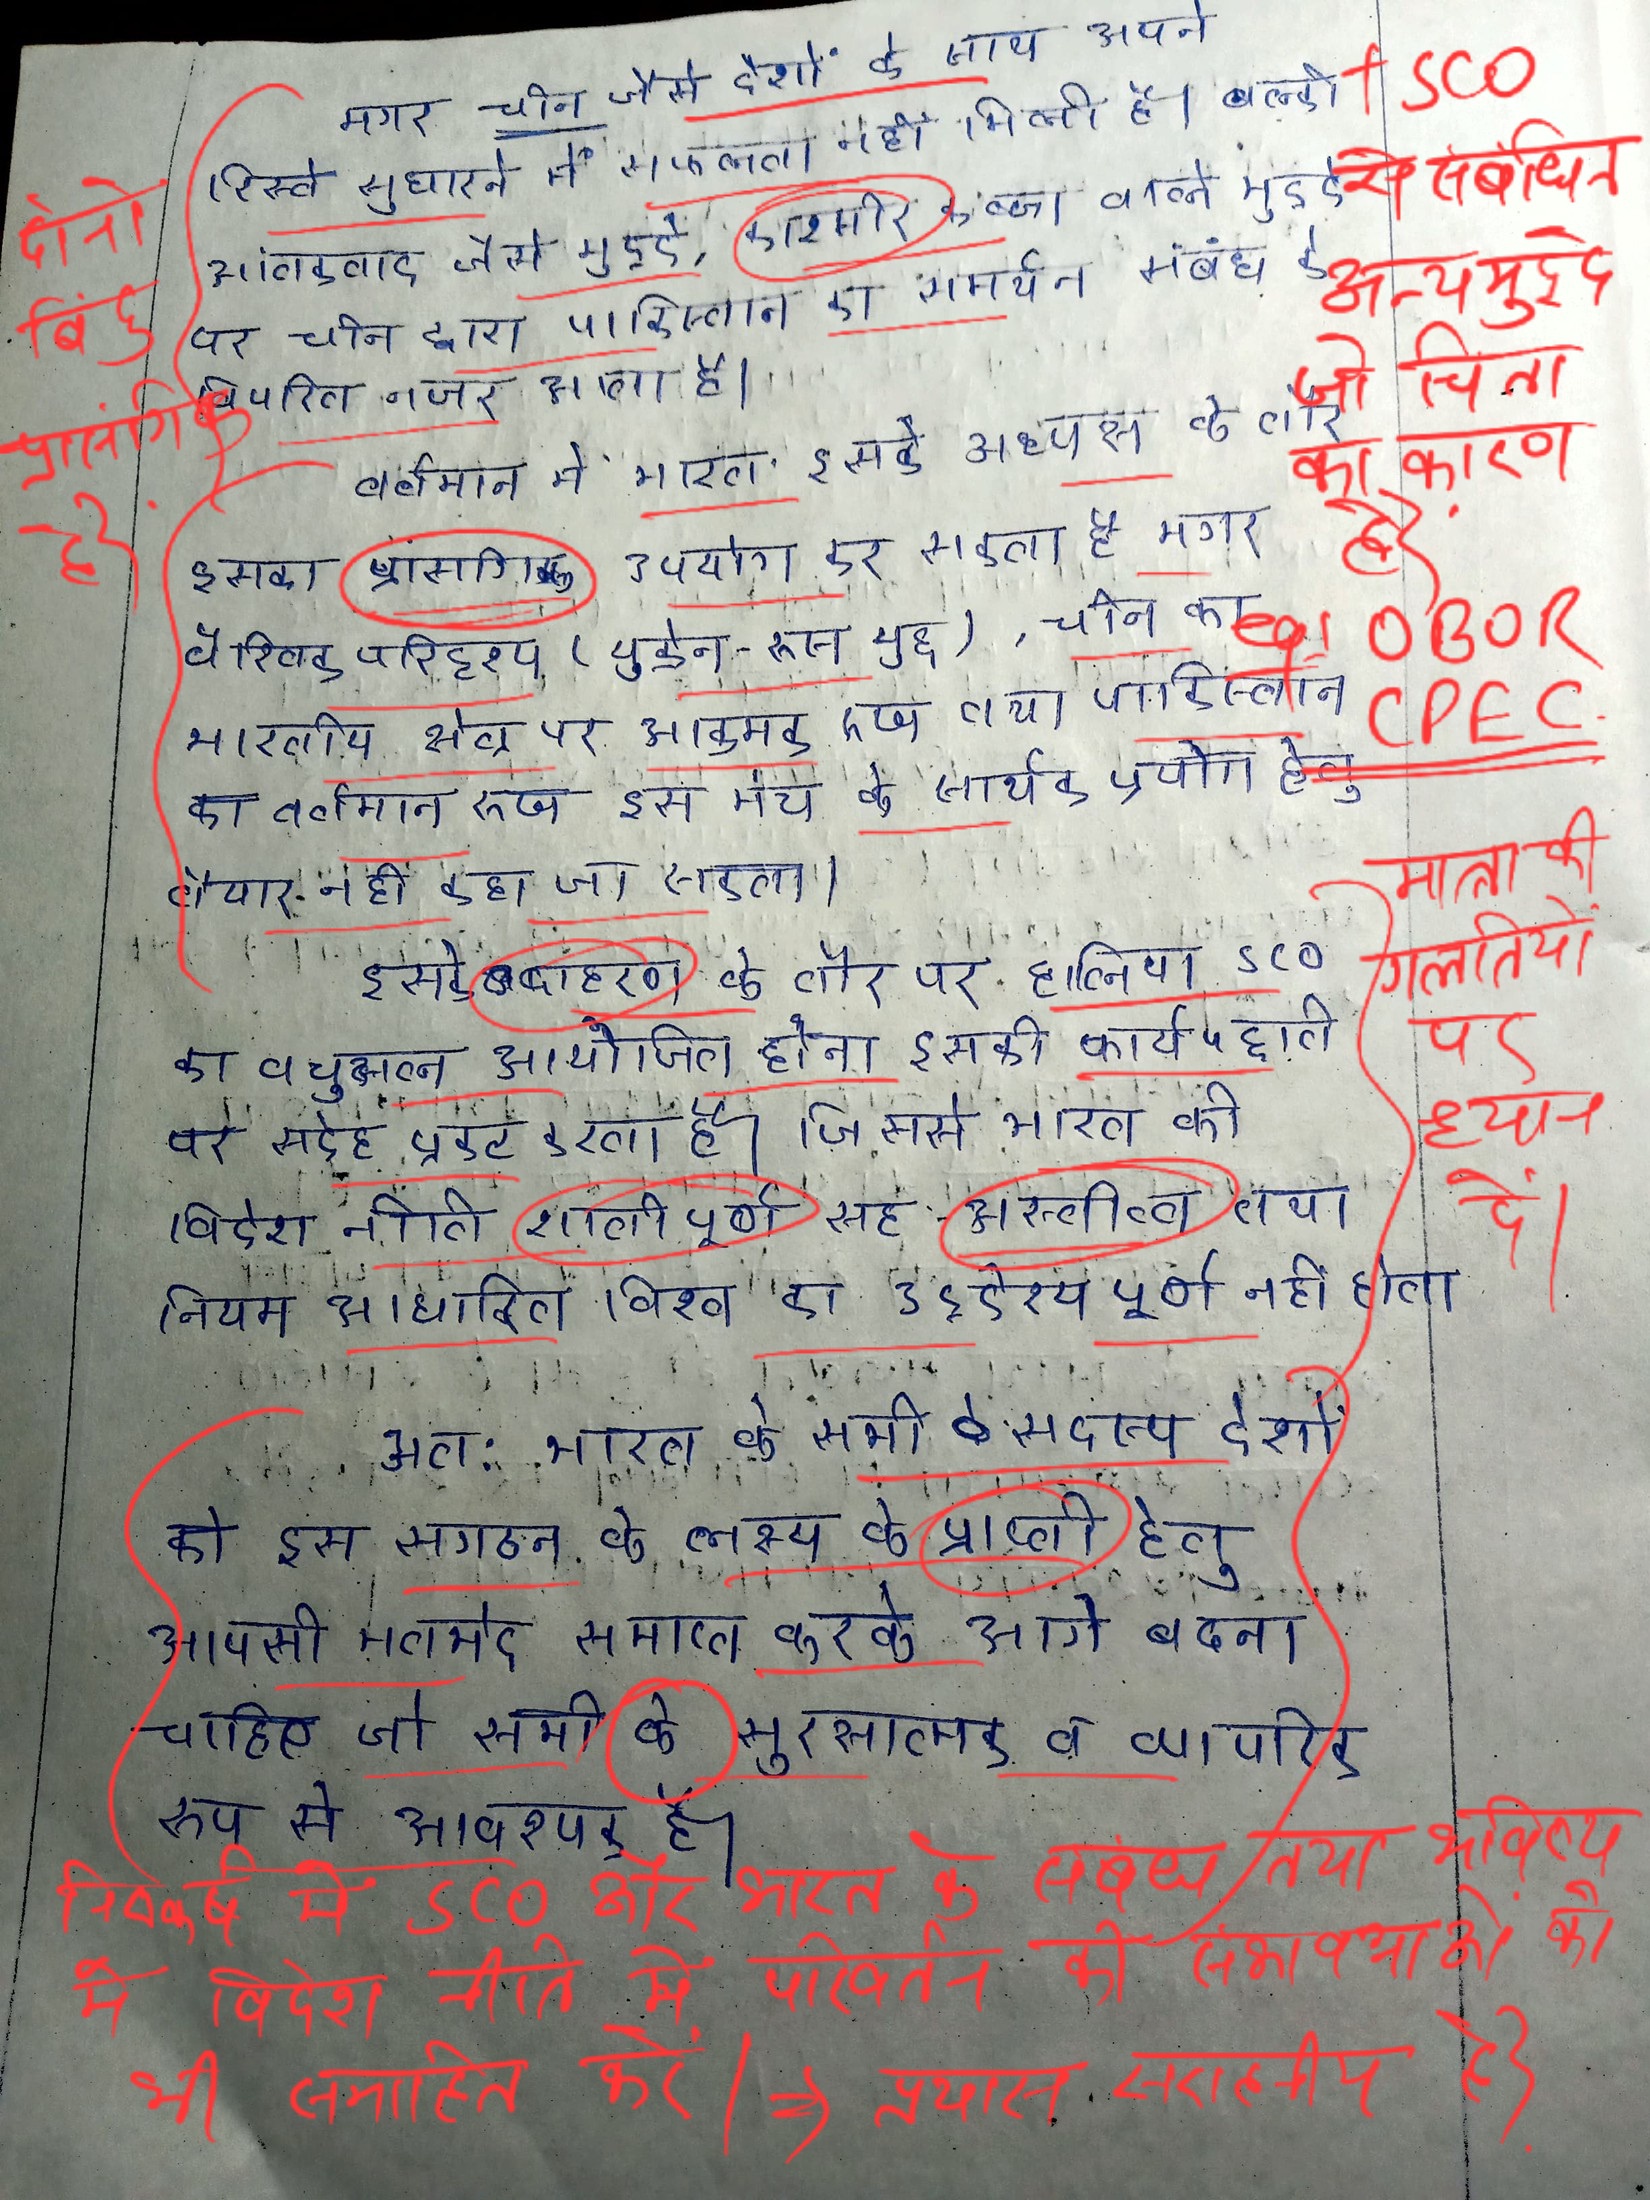 मगर चीन जैसे देशों के साथ अपने
रिस्ते सुधारने में सफलता नहीं मिली है। बल्की
आंतकवाद जैसे मुद्दे, काश्मीर कब्जा वाले मुद्दे
पर चीन द्वारा पाकिस्तान का समर्थन संबंध के
विपरित नजर आता है।
वर्तमान में भारत इसके अध्यक्ष के तौर
इसका प्रासंगिक उपयोग कर सकता है मगर
वैश्विक परिदृश्य (युक्रेन-रूस युद्ध), चीन का
भारतीय क्षेत्र पर आक्रमक रूख तथा पाकिस्तान
का वर्तमान रूख इस मंच के सार्थक प्रयोग हेतु
तैयार नहीं कहा जा सकता।
इसके उदाहरण के तौर पर हालिया SCO
का वर्चुअल आयोजित होना इसकी कार्यपद्धति
पर संदेह प्रकट करता है। जिससे भारत की
विदेश नीति शांतीपूर्ण सह-अस्तीत्व तथा
नियम आधारित विश्व का उद्देश्य पूर्ण नहीं होता
अतः भारत के सभी के सदस्य देशों
को इस सगठन के लक्ष्य के प्राप्ती हेतु
आपसी मतभेद समाप्त करके आगे बढना
चाहिए जो सभी के सुरक्षात्मक व व्यापारिक
रूप से आवश्यक है।
दोनों
बिंदु
प्रासंगिक
है।
SCO
से संबंधित
अन्य मुद्दे
जो चिंता
का कारण
है।
OBOR
CPEC.
मात्रा की
गलतियों
पर
ध्यान
दें।
निष्कर्ष में SCO और भारत के संबंध तथा भविष्य
में विदेश नीति में परिवर्तन की संभावनाओं को
भी समाहित करें। ⇒ प्रयास सराहनीय है।